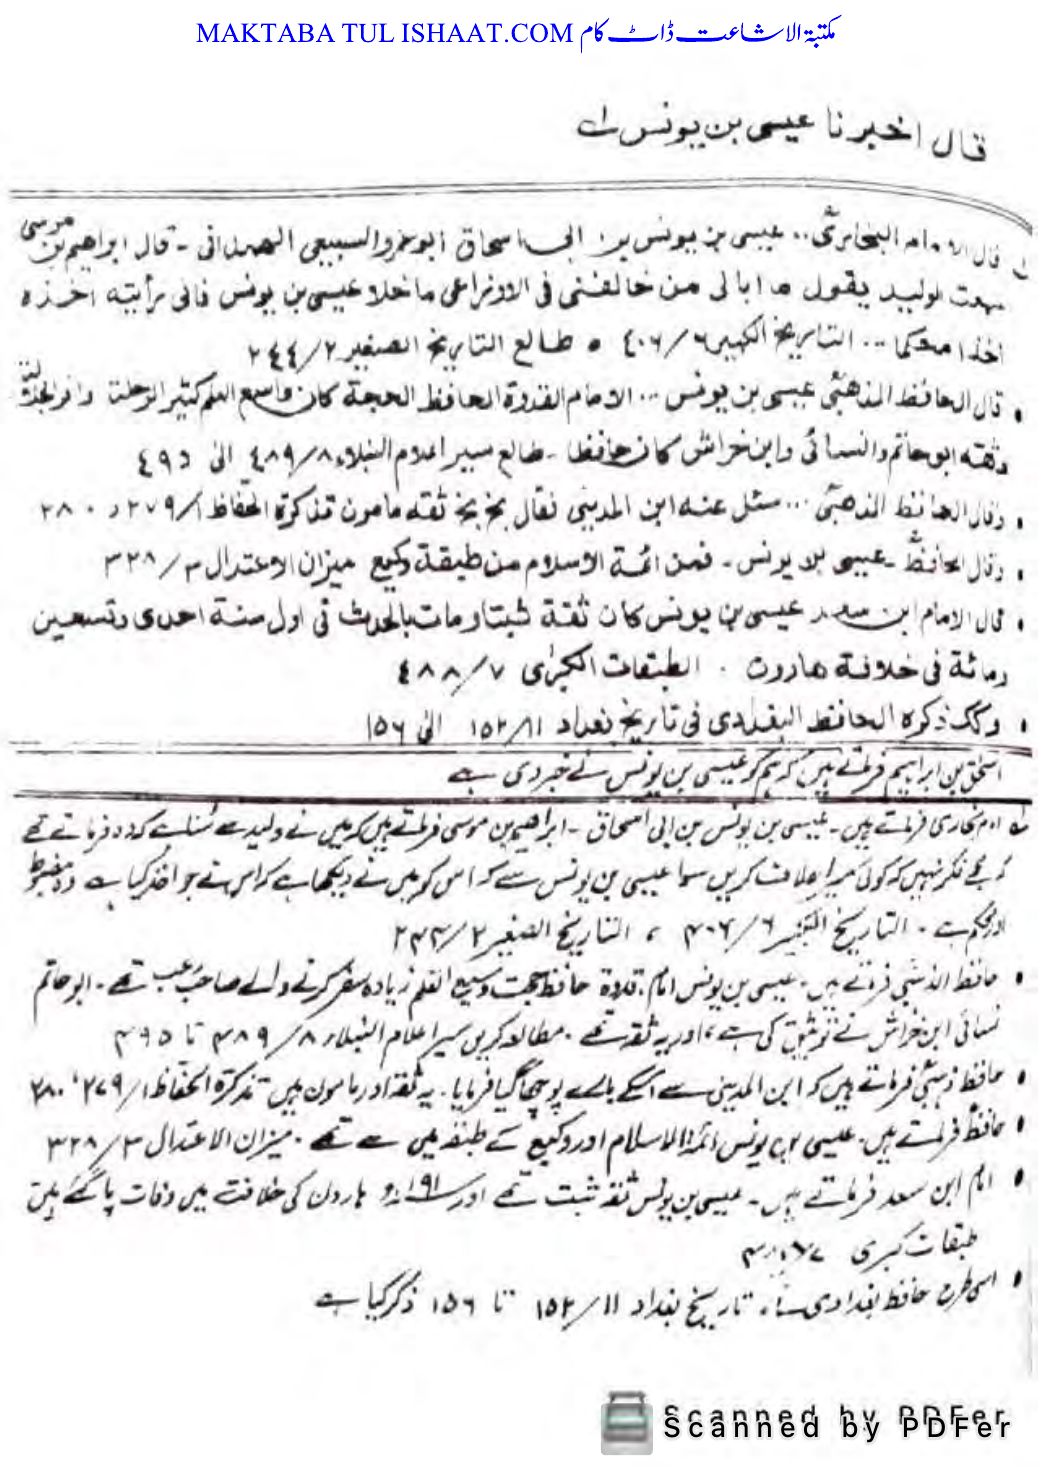 MAKTABA TUL ISHAAT.COM مكتبة الاشاعت ڈاٹ کام
قال اخبرنا عيسى بن يونس
قال الامام البخاری .. عيسى بن يونس بن ابی اسحاق ابو عمرو السبيعی الهمدانی - قال ابراهيم بن موسى
سمعت الوليد يقول ما ابالی من خالفنی فی الاوزاعی ما خلا عيسى بن يونس فانی رأيته اخذه
اخذا محكما ... التاريخ الكبير ٦/٤٠٦ ، طالع التاريخ الصغير ٢/٢٤٤
• قال الحافظ الذهبی عيسى بن يونس ... الامام القدوة الحافظ الحجة كان واسع العلم كثير الرحلة وافر الجلالة
وثقه ابو حاتم والنسائی وابن خراش كان حافظا - طالع سير اعلام النبلاء ٨/٤٨٩ الى ٤٩٥
• وقال الحافظ الذهبی ... سئل عنه ابن المدينی فقال بخ بخ ثقه مامون تذكرة الحفاظ ١/٢٧٩ و ٢٨٠
• وقال الحافظ - عيسى بن يونس - فمن ائمة الاسلام من طبقة وكيع ميزان الاعتدال ٣/٣٢٨
• قال الامام ابن سعد عيسى بن يونس كان ثقة ثبتا ومات بالحدث فی اول سنة احدى وتسعين
ومائة فی خلافة هارون . الطبقات الكبرى ٧/٤٨٨
• وكذا ذكره الحافظ البغدادی فی تاريخ بغداد ١١/١٥٢ الى ١٥٦
اسحٰق بن ابراہیم فرماتے ہیں کہ ہم کو عیسی بن یونس نے خبر دی ہے
امام بخاری فرماتے ہیں - عیسی بن یونس بن ابی اسحاق - ابراهیم بن موسی فرماتے ہیں کہ میں نے ولید سے سُنا ہے کہ وہ فرماتے تھے
کہ مجھے فکر نہیں کہ کوئی میرا خلاف کریں سوا عیسی بن یونس سے کہ اس کو میں نے دیکھا ہے کہ اس نے جو اخذ کیا ہے وہ مضبوط
اور محکم ہے - التاریخ الکبیر ٦/۴۰٦ ، التاریخ الصغیر ۲/۲۴۴
• حافظ الذہبی فرماتے ہیں - عیسی بن یونس امام، قدوة حافظ حجت وسیع العلم زیادہ سفر کرنے والے صاحب تھے - ابو حاتم
نسائی ابن خراش نے توثیق کی ہے، اور یہ ثقہ تھے . مطالعہ کریں سیر اعلام النبلاء ۸/۴۸۹ تا ۴۹۵
• حافظ ذہبی فرماتے ہیں کہ ابن المدینی سے اسکے بارے پوچھا گیا فرمایا . یہ ثقہ اور مامون ہیں تذکرة الحفاظ ۱/۲۷۹، ۲۸۰
• حافظ فرماتے ہیں - عیسی بن یونس ائمة الاسلام اور وکیع کے طبقہ میں سے تھے . میزان الاعتدال ۳/۳۲۸
• امام ابن سعد فرماتے ہیں - عیسی بن یونس ثقہ ثبت تھے اور ۱۹۱ ہارون کی خلافت میں وفات پا گئے ہیں
طبقات کبری
• اسی طرح حافظ بغدادی نے تاریخ بغداد ۱۱/۱۵۲ تا ۱۵٦ ذکر کیا ہے
Scanned by PDFer